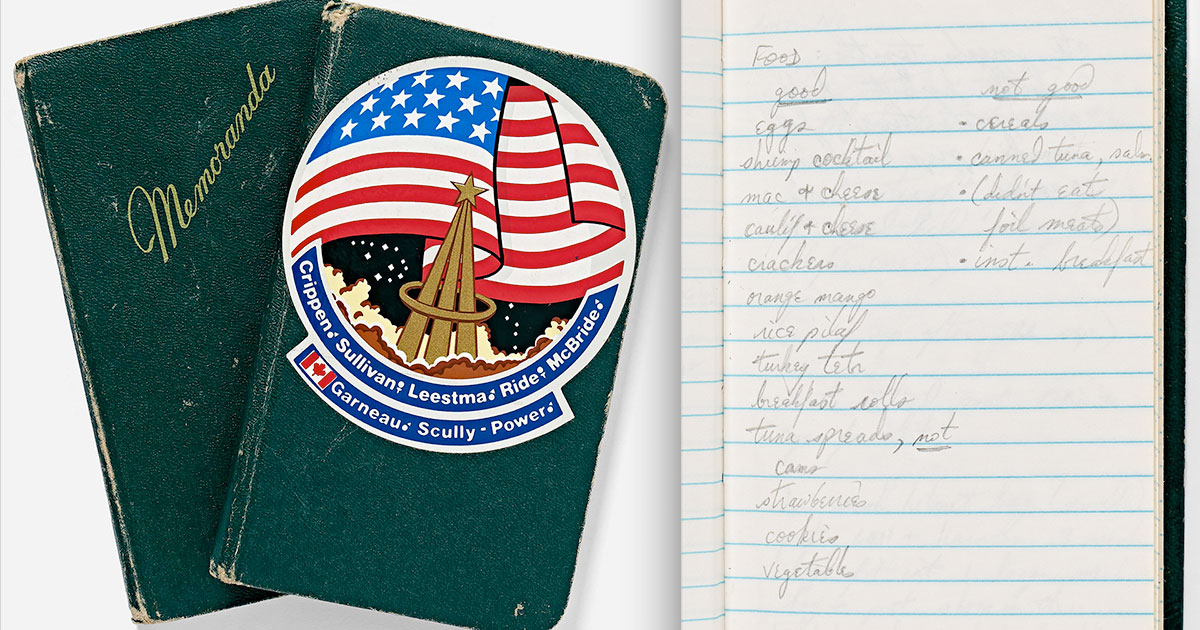 Memoranda
Crippen Sullivan Leestma Ride McBride
Garneau Scully-Power
FOOD:
good
not good
eggs
• cereals
shrimp cocktail
• canned tuna, salm.
mac & cheese
• (didn't eat
caulif & cheese
foil meats)
crackers
• inst. breakfast
orange mango
rice pilaf
turkey tetr
breakfast rolls
tuna spreads, not
cans
strawberries
cookies
vegetables